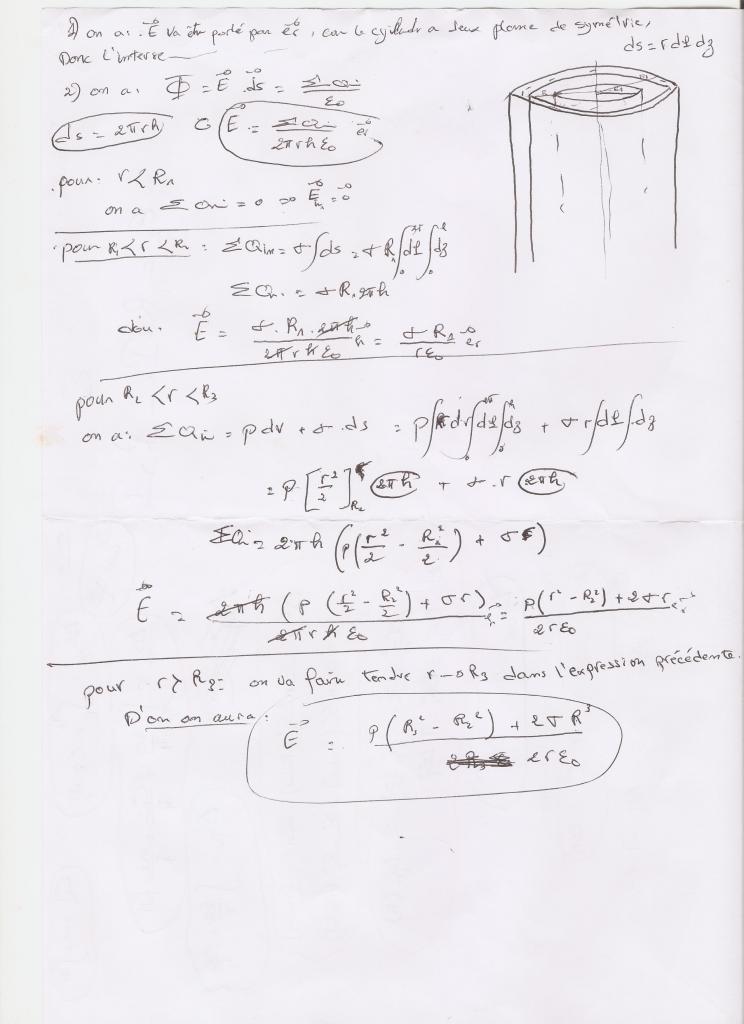 1) on a: E⃗ va être porté par e⃗r, car le cylindre a deux plans de symétrie,
Donc l'interse
ds = r dφ dz
2) on a: Φ = E⃗ . ds⃗ = ΣQi / ε0
ds = 2πrh E⃗ = ΣQi / 2πrhε0 e⃗r
pour: r < R1
on a ΣQin = 0 => E⃗ = 0⃗
pour R1 < r < R2 : ΣQin = σ∫ds = σ R1 ∫dφ ∫dz
ΣQin = σ R1 2πh
d'où: E⃗ = σ. R1. 2πh / 2πrhε0 = σ R1 / rε0 e⃗r
pour R2 < r < R3
on a: ΣQin = ρ dv + σ. ds = ρ∫r dr∫dφ∫dz + σ r∫dφ∫dz
= ρ [r²/2]R2 2πh + σ. r 2πh
ΣQi = 2πh (ρ(r²/2 - R2²/2) + σr)
E⃗ = 2πh (ρ (r²/2 - R2²/2) + σr) / 2πrhε0 e⃗r = ρ(r² - R2²) + 2σr / 2rε0 e⃗r
pour r > R3: on va faire tendre r → R3 dans l'expression précédente.
D'où on aura:
E⃗ = ρ(R3² - R2²) + 2σR3 / 2rε0